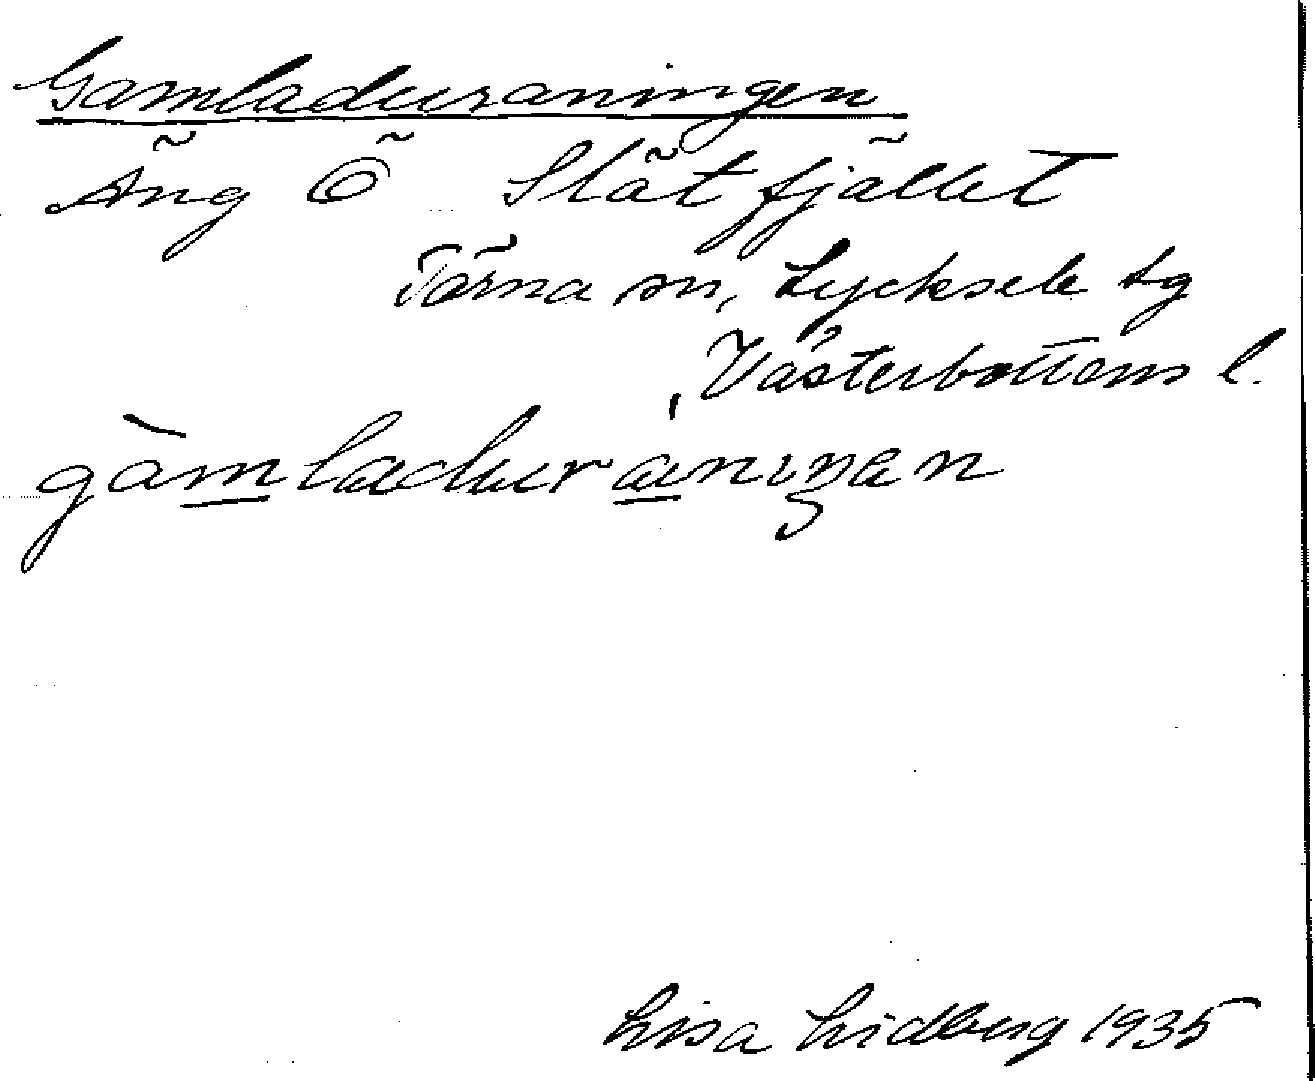 Gamladuraningen
Äng Ö Slätfjället
Tärna sn, Lycksele lg
Västerbottens l.
gàmladuranıŋan
Lisa Lidberg 1935